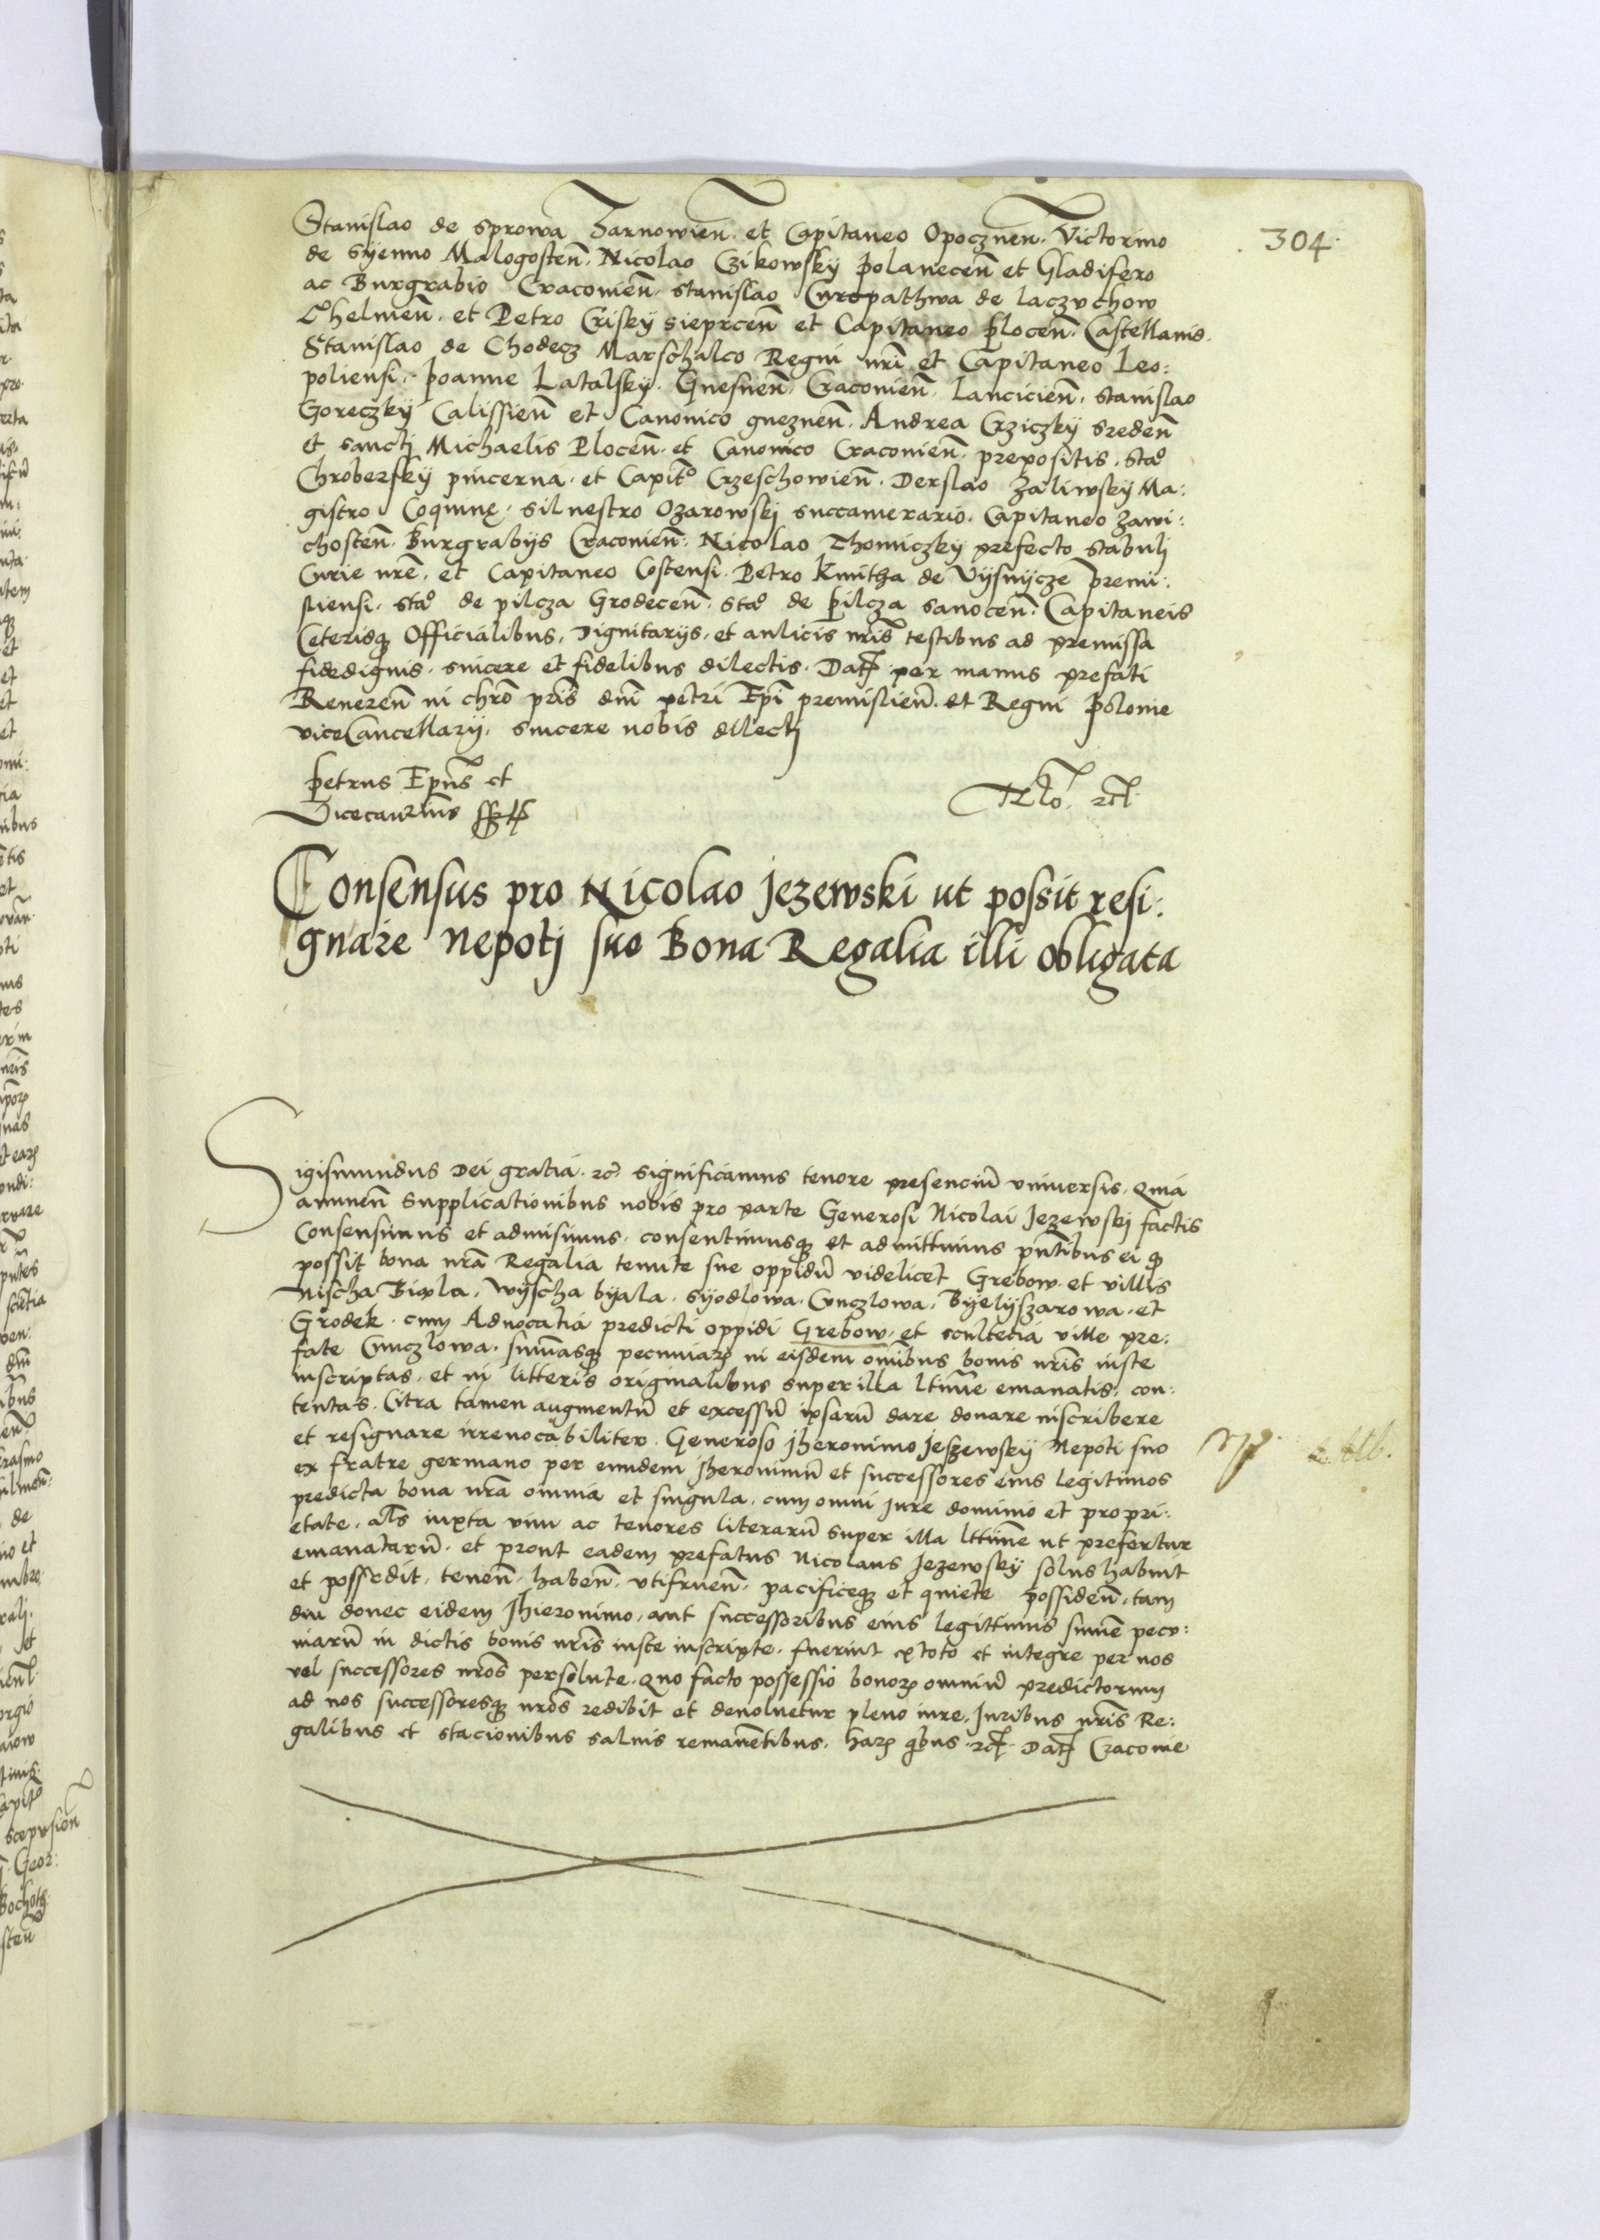 304
Stanislao de Sprowa Zarnowien. et Capitaneo Opocznen. Victorino
de Syenno Malogosten̄. Nicolao Czikowsky Polanecen̄ et Gladifero
ac Burgrabio Cracovien̄. Stanislao Curopathwa de Laczuchow
Chelmen̄. et Petro Crisky Sieprcen̄ et Capitaneo Plocen̄. Castellanis.
Stanislao de Chodecz Marschalco Regni nr̄i et Capitaneo Leo:
poliensi. Joanne Latalsky. Gnesnen̄. Cracovien̄. Lancicien̄. Stanislao
Goreczky Calissien̄ et Canonico gneznen̄. Andrea Crziczky Sreden̄
et sanctj Michaelis Plocen̄. et Canonico Cracovien̄. prepositis. Stāo
Chrobersky pincerna. et Capit̄o Crzeschowien̄. Derslao Zaliwsky Ma:
gistro Coquinę. Silvestro Ozarowskj succamerario. Capitaneo Zawi:
chosten̄. Burgrabijs Cracovien̄. Nicolao Thomiczky prefecto stabulj
Curie nr̄e. et Capitaneo Costensi. Petro Kmitha de Vysnycze Premi:
sliensi. Stāo de pilcza Grodecen̄. Stāo de Pilcza Sanocen̄. Capitaneis
Ceterisq̄ Officialibus, Dignitarijs. et aulicis nr̄is testibus ad premissa
fidedignis. sincere et fidelibus dilectis. Dat̄ per manus prefati
Reveren̄ in chrō pr̄is dn̄i petri Ep̄i premislien̄. et Regni Polonie
viceCancellarij, sincere nobis dilectj
Petrus Ep̄us et
Vicecan̄rius
Consensus pro Nicolao Jezewski ut possit resi:
gnare Nepotj suo Bona Regalia illi obligata
Sigismundus Dei gratia. rc̄. Significamus tenore presenciū universis. Quia
annuen̄ supplicationibus nobis pro parte Generosi Nicolai Jezewskj factis
Consensimus et admisimus. consentimusq̄ et admittimus pn̄tibus ei q̄
possit bona nr̄a Regalia tenute sue oppidū videlicet Grebow. et villis
Nischa Biala. Wyscha byala. Syodlowa. Cunczlowa. Byelyszarowa. et
Grodek. cum Advocatia predicti oppidi Grebow. et scultetia ville pre:
fate Cunczlowa. sum̄asq̄ pecuniar̄ in eisdem om̄ibus bonis nr̄is iuste
inscriptas. et in litteris originalibus super illa lt̄ime emanatis. con:
tentas. Citra tamen augmentū et excessū ipsarū dare donare inscribere
et resignare irrevocabiliter. Generoso Jheronimo Jeszewskij Nepoti suo
ex fratre germano per eundem Jheronimū et successores eius legitimos
predicta bona nr̄a omnia et singula. cum omni Jure dominio et propri:
etate. al̄s iuxta vim ac tenores literarū super illa lt̄ime ut prefertur
emanatarū. et prout eadem prefatus Nicolaus Jezewsky solus habuit
et possedit. tenen̄. haben̄. utifruen̄. pacificeq̄ et quiete possiden̄. tam
diu donec eidem Jhieronimo. aut successoribus eius legittimis sum̄e pecu:
niarū in dictis bonis nr̄is iuste inscripte. fuerint ex toto et integre per nos
vel successores nr̄os persolute. Quo facto possessio bonor̄ omniū predictorum
ad nos successoresq̄ nr̄os redibit et devolvetur pleno iure. Juribus nr̄is Re:
galibus et stacionibus salvis remanētibus. Har̄ q̄bus. rc̄. Dat̄ Cracovie